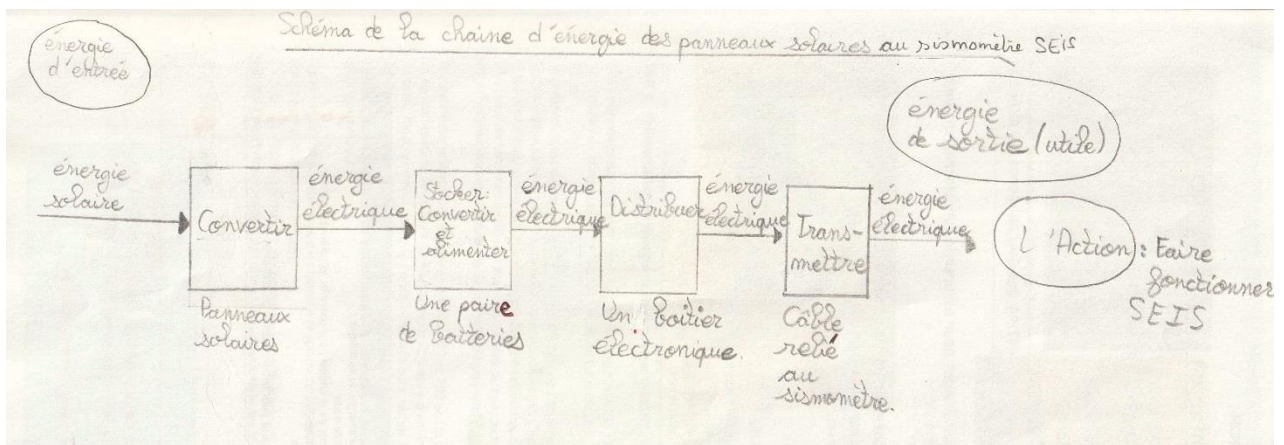 Schéma de la chaine d'énergie des panneaux solaires au sismomètre SEIS
énergie
d'entrée
énergie
de sortie (utile)
énergie
solaire
Convertir
Panneaux
solaires
énergie
électrique
Stocker:
Convertir
et
alimenter
Une paire
de batteries
énergie
électrique
Distribuer
Un boitier
électronique.
énergie
électrique
Trans-
mettre
Câble
relié
au
sismomètre.
énergie
électrique
L'Action : Faire
fonctionner
SEIS